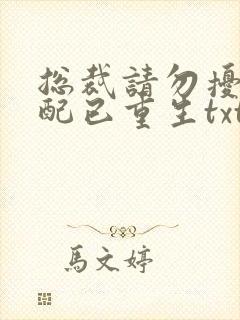 總裁請勿擾
配已重生txt
馬文婷